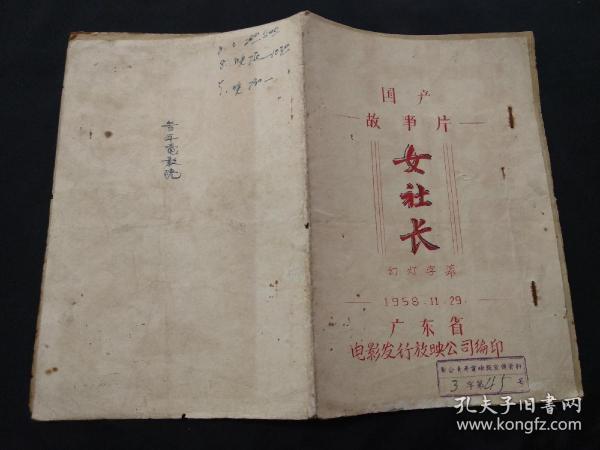 国产
故事片
女社长
幻灯字幕
1958.11.29.
广东省
电影发行放映公司编印
3 字第 45 号
孔夫子旧书网
www.kongfz.com